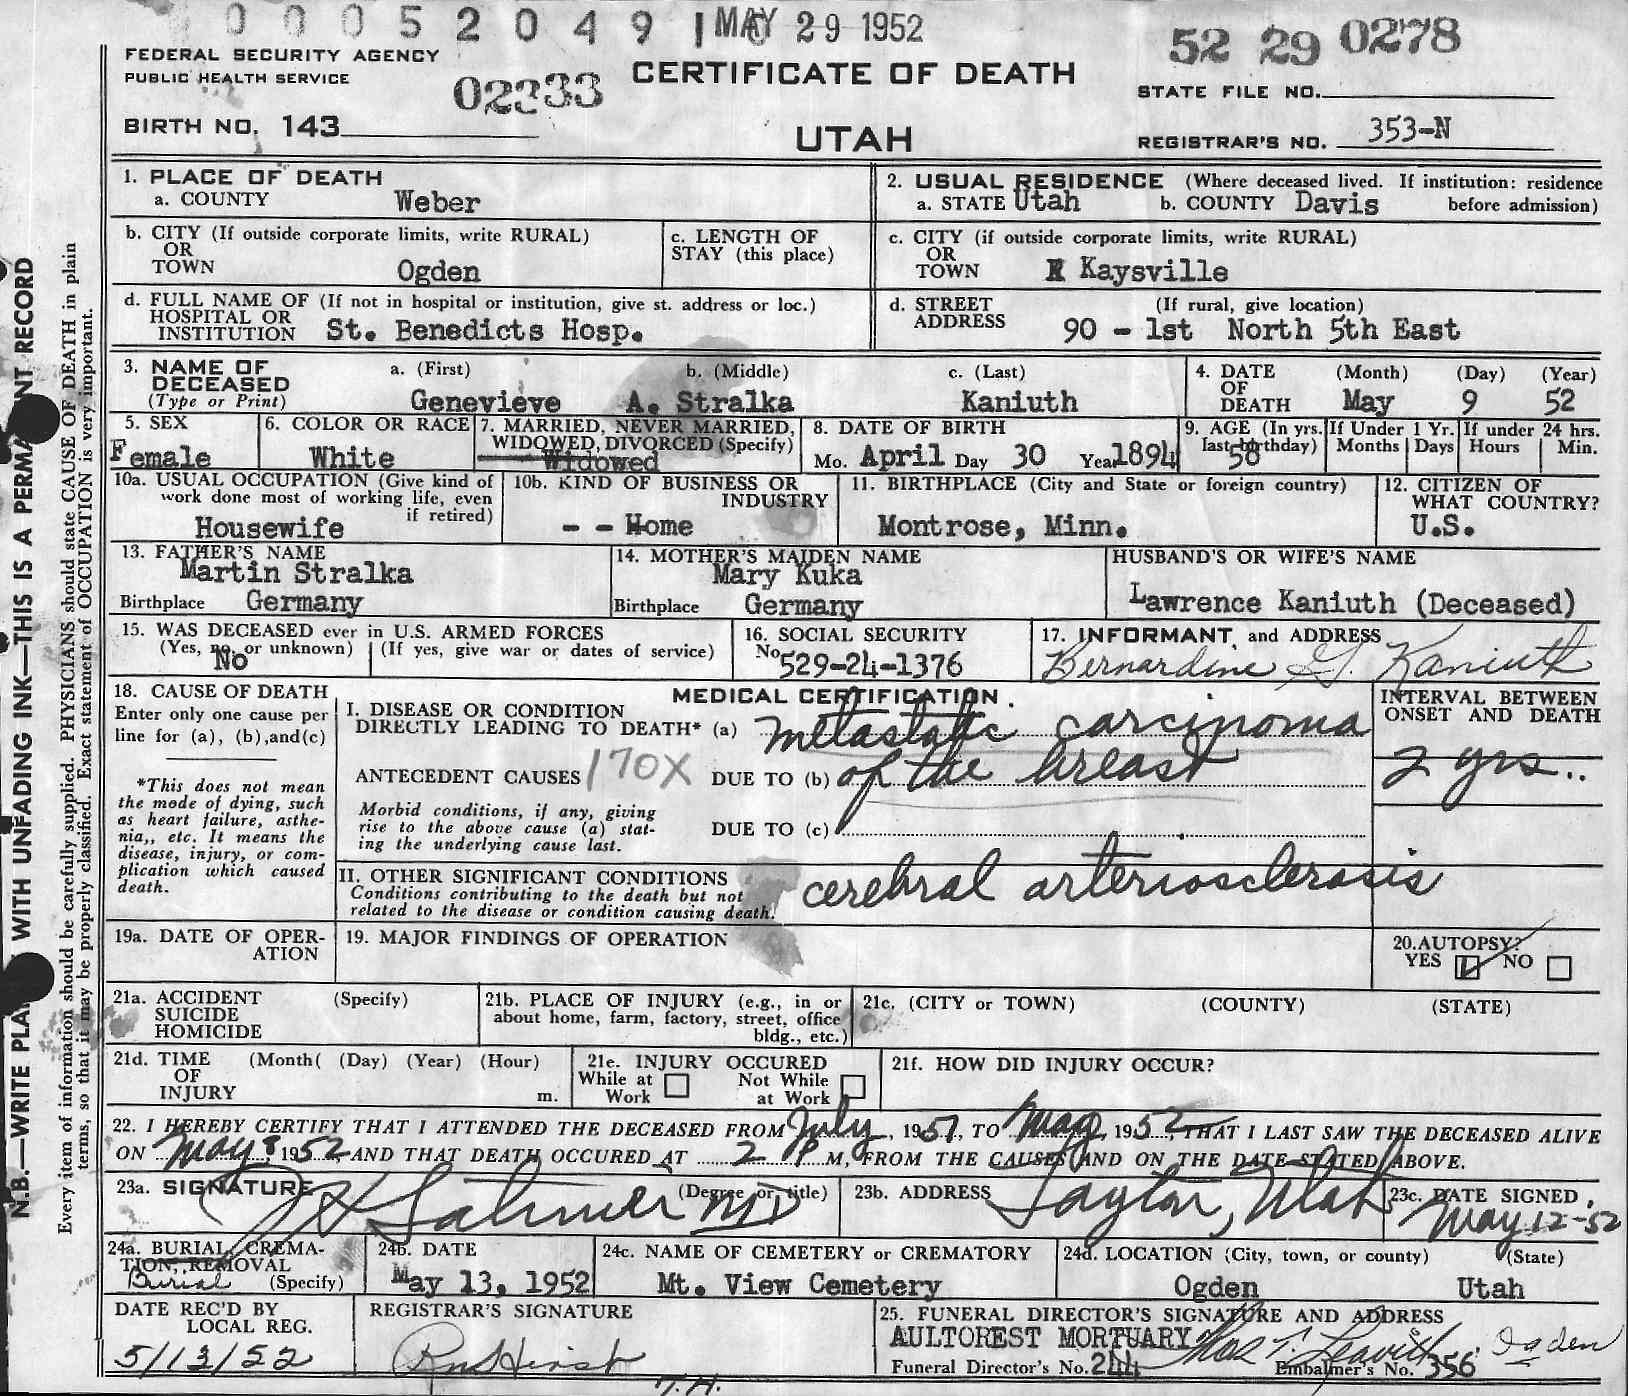 0 0 0 5 2 0 4 9 MAY 29 1952
52 29 0278
FEDERAL SECURITY AGENCY
PUBLIC HEALTH SERVICE
02333
CERTIFICATE OF DEATH
STATE FILE NO.
BIRTH NO. 143
UTAH
REGISTRAR'S NO. 353-N
1. PLACE OF DEATH
a. COUNTY Weber
2. USUAL RESIDENCE (Where deceased lived. If institution: residence
a. STATE Utah b. COUNTY Davis before admission)
b. CITY (If outside corporate limits, write RURAL)
OR
TOWN Ogden
c. LENGTH OF
STAY (this place)
c. CITY (if outside corporate limits, write RURAL)
OR
TOWN Kaysville
d. FULL NAME OF (If not in hospital or institution, give st. address or loc.)
HOSPITAL OR
INSTITUTION St. Benedicts Hosp.
d. STREET (If rural, give location)
ADDRESS 90 - 1st North 5th East
3. NAME OF a. (First) b. (Middle) c. (Last)
DECEASED
(Type or Print) Genevieve A. Stralka Kaniuth
4. DATE (Month) (Day) (Year)
OF
DEATH May 9 52
5. SEX
Female
6. COLOR OR RACE
White
7. MARRIED, NEVER MARRIED,
WIDOWED, DIVORCED (Specify)
Widowed
8. DATE OF BIRTH
Mo. April Day 30 Year 1894
9. AGE (In yrs.
last birthday)
58
If Under 1 Yr.
Months Days
If under 24 hrs.
Hours Min.
10a. USUAL OCCUPATION (Give kind of
work done most of working life, even
if retired)
Housewife
10b. KIND OF BUSINESS OR
INDUSTRY
- - Home
11. BIRTHPLACE (City and State or foreign country)
Montrose, Minn.
12. CITIZEN OF
WHAT COUNTRY?
U.S.
13. FATHER'S NAME
Martin Stralka
Birthplace Germany
14. MOTHER'S MAIDEN NAME
Mary Kuka
Birthplace Germany
HUSBAND'S OR WIFE'S NAME
Lawrence Kaniuth (Deceased)
15. WAS DECEASED ever in U.S. ARMED FORCES
(Yes, no, or unknown) (If yes, give war or dates of service)
No
16. SOCIAL SECURITY
No. 529-24-1376
17. INFORMANT and ADDRESS
Bernardine G. Kaniuth
18. CAUSE OF DEATH
Enter only one cause per
line for (a), (b),and(c)
*This does not mean
the mode of dying, such
as heart failure, asthe-
nia,, etc. It means the
disease, injury, or com-
plication which caused
death.
MEDICAL CERTIFICATION
I. DISEASE OR CONDITION
DIRECTLY LEADING TO DEATH* (a) metastatic carcinoma
ANTECEDENT CAUSES 170X DUE TO (b) of the breast
Morbid conditions, if any, giving
rise to the above cause (a) stat-
ing the underlying cause last.
DUE TO (c)
INTERVAL BETWEEN
ONSET AND DEATH
2 yrs..
II. OTHER SIGNIFICANT CONDITIONS
Conditions contributing to the death but not
related to the disease or condition causing death.
cerebral arteriosclerosis
19a. DATE OF OPER-
ATION
19. MAJOR FINDINGS OF OPERATION
20. AUTOPSY?
YES NO
21a. ACCIDENT (Specify)
SUICIDE
HOMICIDE
21b. PLACE OF INJURY (e.g., in or
about home, farm, factory, street, office
bldg., etc.)
21c. (CITY or TOWN) (COUNTY) (STATE)
21d. TIME (Month( (Day) (Year) (Hour)
OF
INJURY m.
21e. INJURY OCCURED
While at Not While
Work at Work
21f. HOW DID INJURY OCCUR?
22. I HEREBY CERTIFY THAT I ATTENDED THE DECEASED FROM July, 1951, TO May, 1952, THAT I LAST SAW THE DECEASED ALIVE
ON May 8, 1952, AND THAT DEATH OCCURED AT 2 P M, FROM THE CAUSES AND ON THE DATE STATED ABOVE.
23a. SIGNATURE (Degree or title)
MD
23b. ADDRESS
Layton, Utah
23c. DATE SIGNED
May 12-52
24a. BURIAL, CREMA-
TION, REMOVAL
Burial (Specify)
24b. DATE
May 13, 1952
24c. NAME OF CEMETERY or CREMATORY
Mt. View Cemetery
24d. LOCATION (City, town, or county) (State)
Ogden Utah
DATE REC'D BY
LOCAL REG.
5/13/52
REGISTRAR'S SIGNATURE
T.H.
25. FUNERAL DIRECTOR'S SIGNATURE AND ADDRESS
AULTOREST MORTUARY Thos T. Leavitt Ogden
Funeral Director's No. 244 Embalmer's No. 356
N.B.—WRITE WITH UNFADING INK—THIS IS A RECORD
Every item of information should be carefully supplied. PHYSICIANS should state CAUSE OF DEATH in plain
terms, so that it may be properly classified. Exact statement of OCCUPATION is very important.